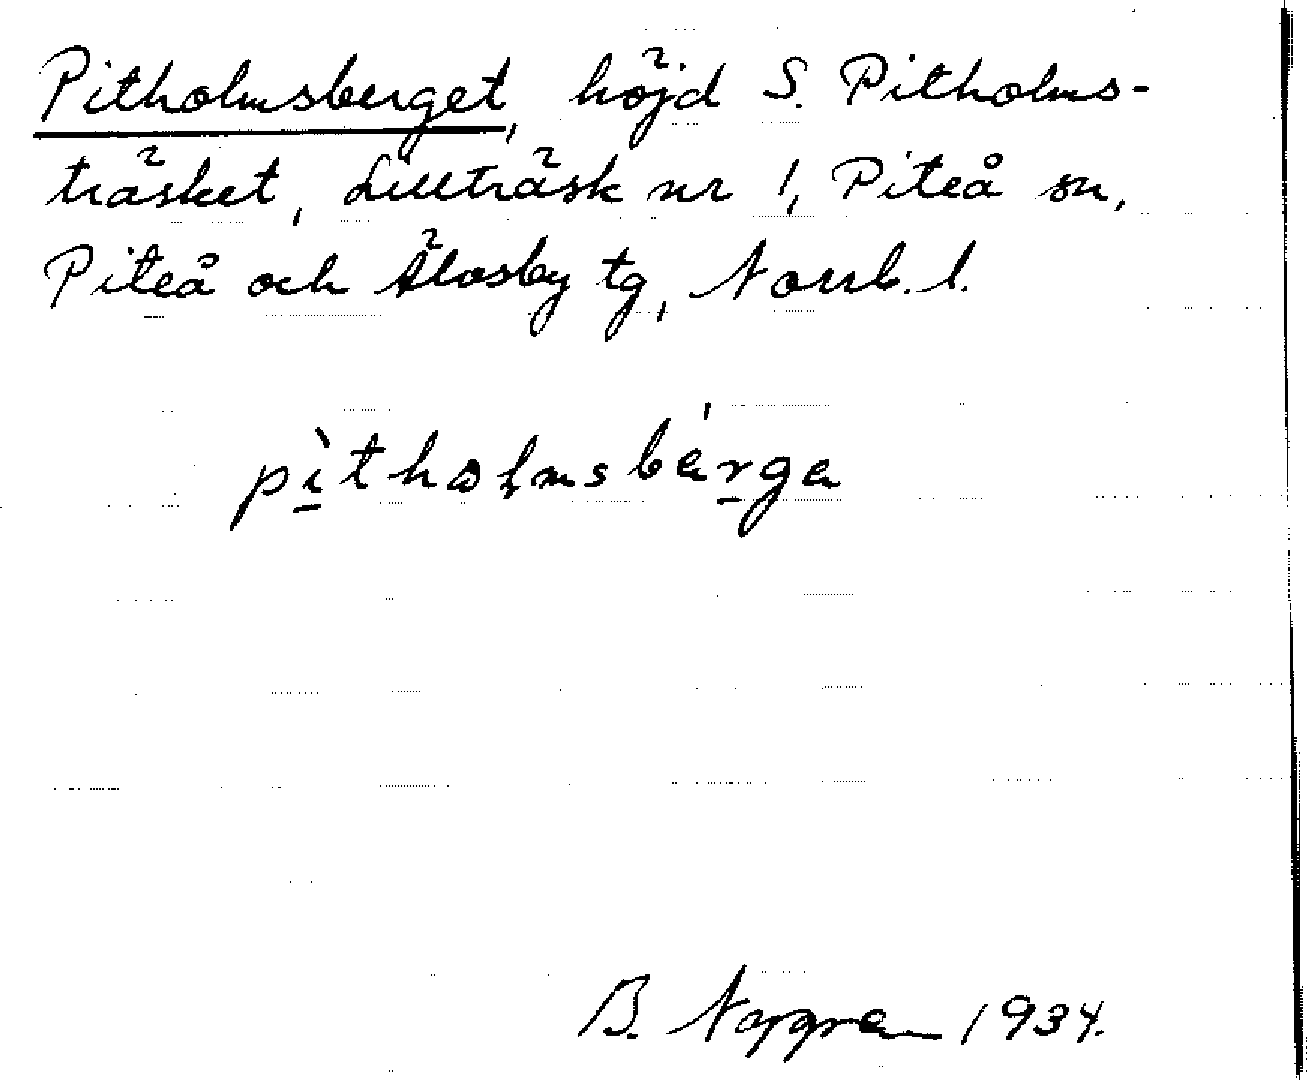 Pitholmsberget, höjd S. Pitholms-
träsket, Lillträsk nr 1, Piteå sn,
Piteå och Älvsby tg, Norrb. l.
pìtholmsbérga
B. 1934.